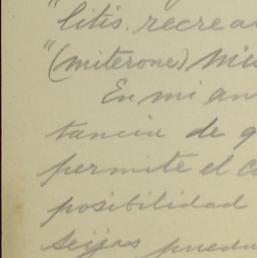 "litis. recrea
"(miterone) Mic
En mi an
tancia de q
permite el c
posibilidad
Seijas pueda